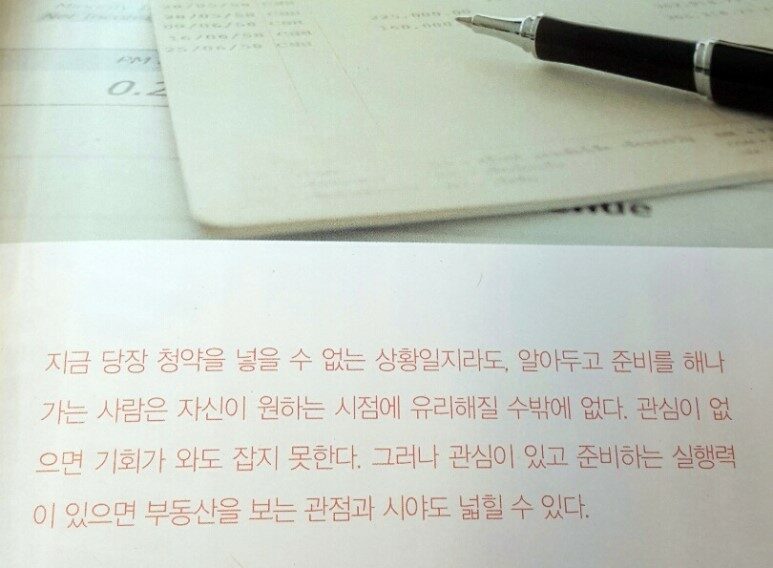 28/05/58 CSH
16/06/58 CSH
25/06/58 CSH
0.2
지금 당장 청약을 넣을 수 없는 상황일지라도, 알아두고 준비를 해나
가는 사람은 자신이 원하는 시점에 유리해질 수밖에 없다. 관심이 없
으면 기회가 와도 잡지 못한다. 그러나 관심이 있고 준비하는 실행력
이 있으면 부동산을 보는 관점과 시야도 넓힐 수 있다.